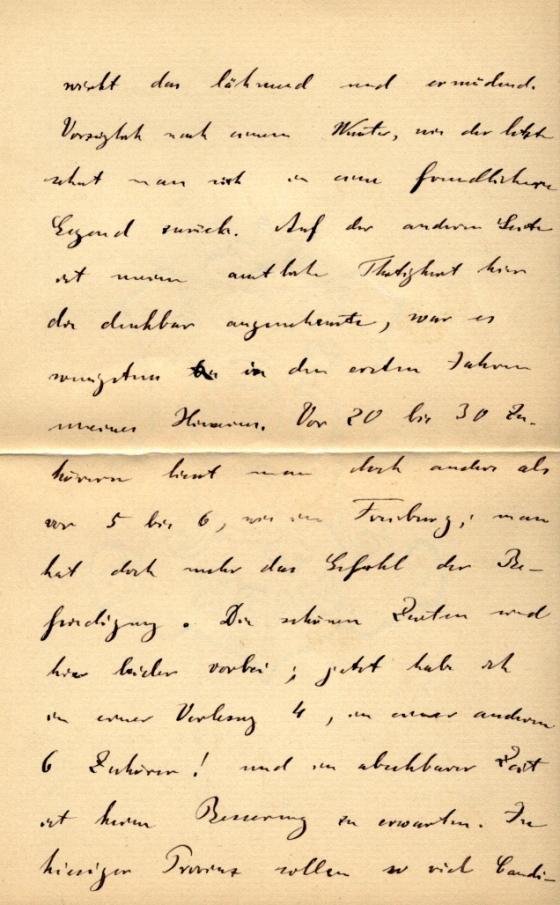 wirkt das lähmend und ermüdend.
Vorzüglich nach einem Winter, wie der letzte
sehnt man sich in eine freundlichere
Gegend zurück. Auf der anderen Seite
ist meine amtliche Thätigkeit hier
die denkbar angenehmste, war es
wenigstens in den ersten Jahren
meines Hierseins. Vor 20 bis 30 Zu-
hörern liest man doch anders als
vor 5 bis 6, wie in Freiburg; man
hat doch mehr das Gefühl der Be-
friedigung. Die schönen Zeiten sind
hier leider vorbei; jetzt habe ich
in einer Vorlesung 4, in einer anderen
6 Zuhörer! und in absehbarer Zeit
ist keine Besserung zu erwarten. In
hiesiger Provinz sollen so viel Candi-